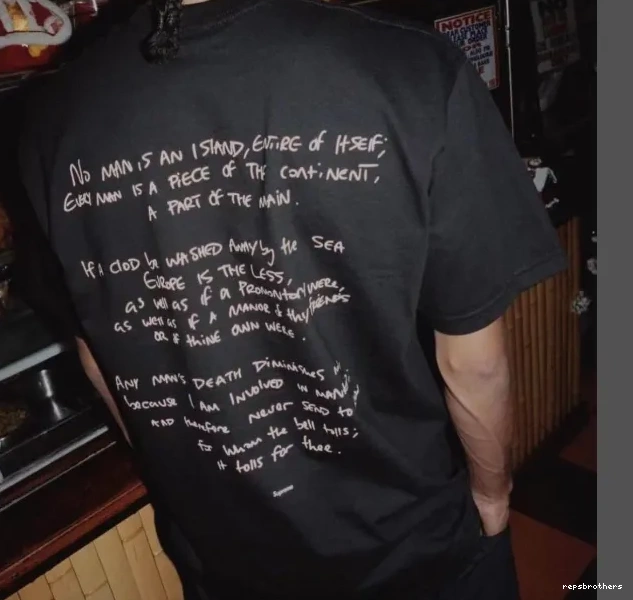 NOTICE
NO MAN IS AN ISLAND, ENTIRE of ITSELF;
EVERY MAN IS A PIECE OF THE CONTINENT,
A PART OF THE MAIN.
If A CLOD be WASHED AWAY by the SEA
EUROPE IS THE LESS,
as well as if a PROMONTORY WERE,
as well as if A MANOR of thy friends
OR of thine OWN WERE.
ANY MAN'S DEATH DIMINISHES
because I AM INVOLVED in
AND therefore never SEND to
for whom the bell tolls;
it tolls for thee.
Supreme
repsbrothers